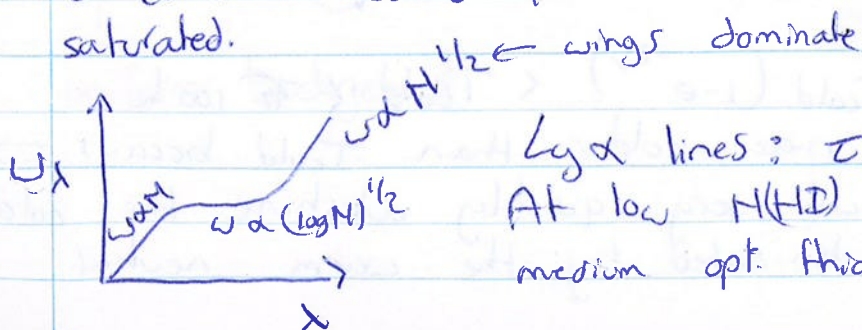 saturated.
W ∝ N^1/2 ← wings dominate
W_λ
W ∝ N
W ∝ (log N)^1/2
λ
Ly α lines: τ
At low N(HI)
medium opt. thic